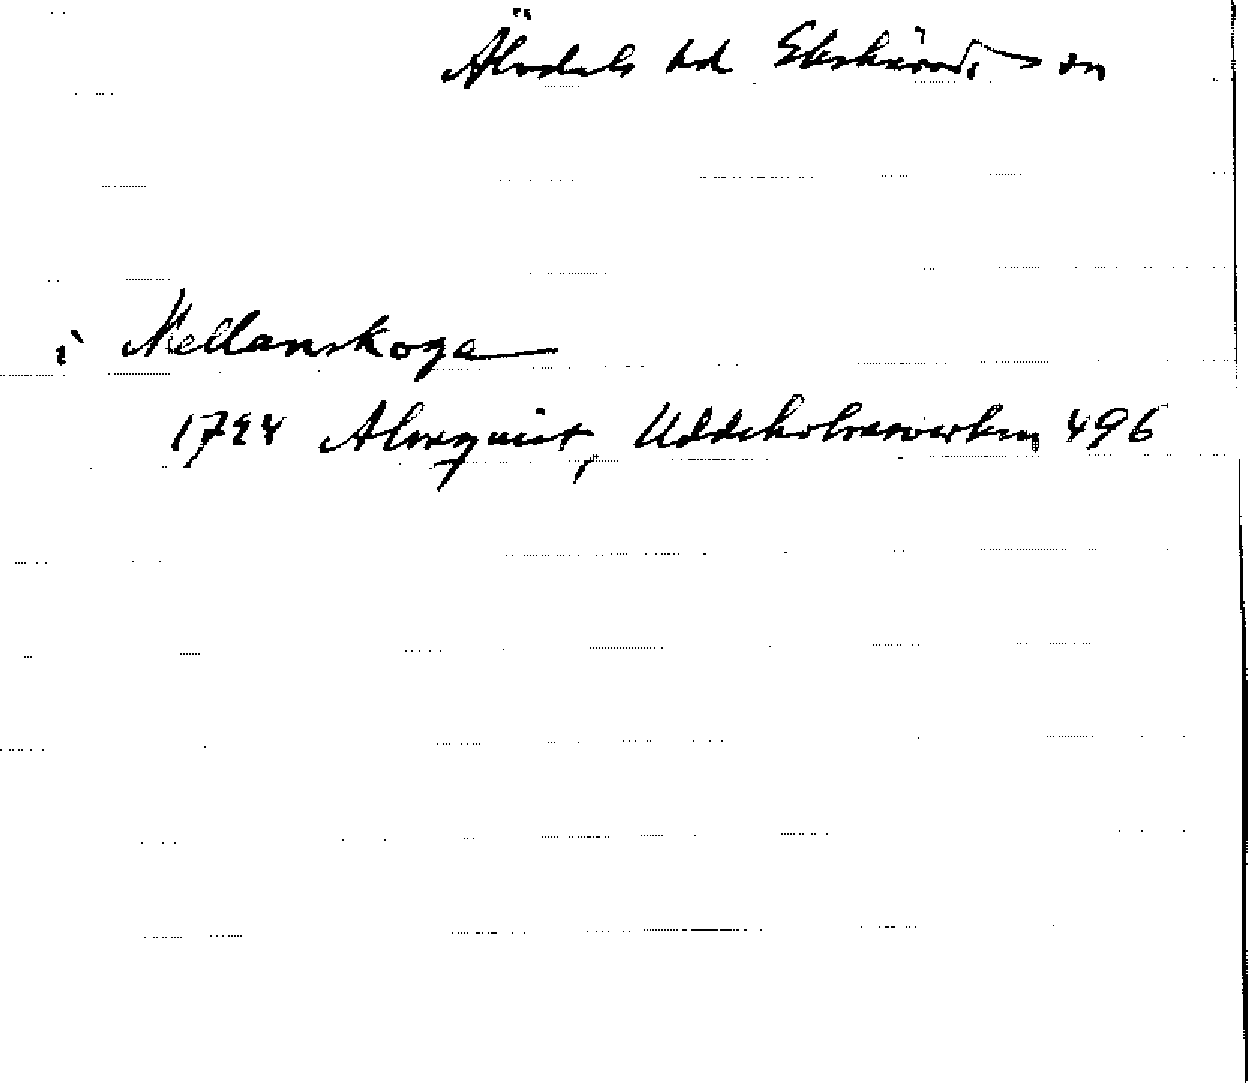 Älvdals hd Ekshärads sn
i Mellanskoga
1724 Almquist, Uddeholmsverken 496